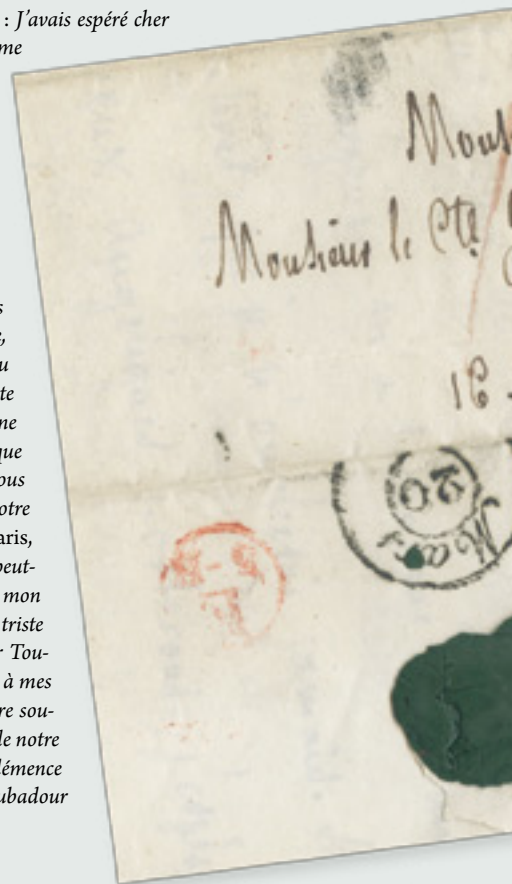 : J’avais espéré cher
me
s
,
u
te
ne
que
ous
otre
aris,
peut-
mon
triste
r Tou-
à mes
re sou-
de notre
lémence
ubadour
Monsieur le Cte
16
20
Mars